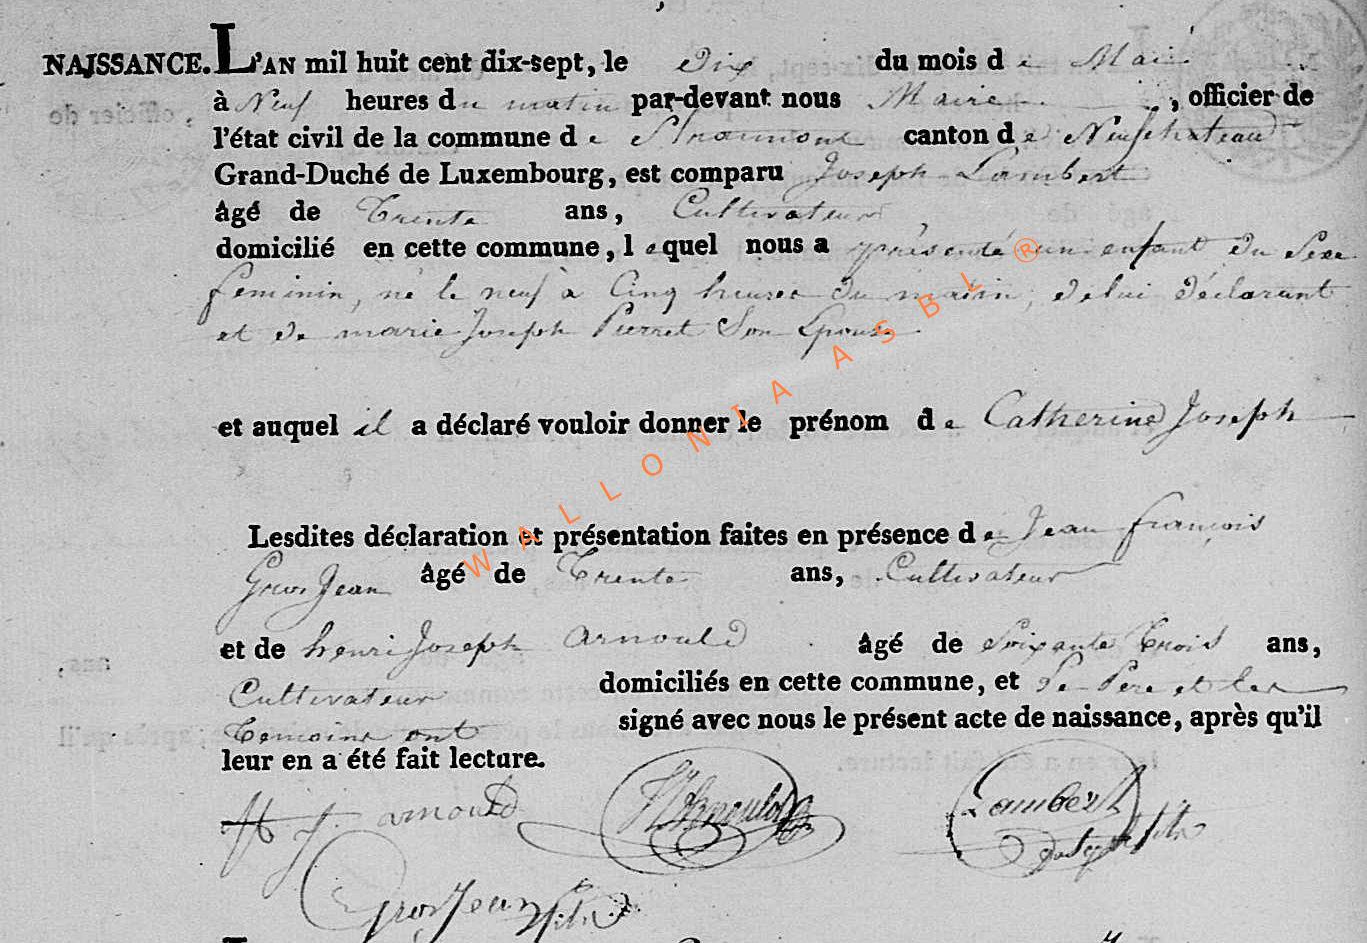 NAISSANCE. L'AN mil huit cent dix-sept, le Dix du mois de Mai
à Neuf heures du matin par-devant nous Maire, officier de
l'état civil de la commune de Straimont canton de Neufchateau
Grand-Duché de Luxembourg, est comparu Joseph Lambert
âgé de Trente ans, Cultivateur,
domicilié en cette commune, lequel nous a présenté un enfant du Sexe
feminin, né le neuf à Cinq heures du matin, de lui déclarant
et de marie Joseph Pierret Son Epouse
et auquel il a déclaré vouloir donner le prénom de Catherine Joseph
Lesdites déclaration et présentation faites en présence de Jean françois
GrosJean âgé de Trente ans, Cultivateur
et de henri Joseph Arnould âgé de Soixante Trois ans,
Cultivateur domiciliés en cette commune, et Le Pere et les
Temoins ont signé avec nous le présent acte de naissance, après qu'il
leur en a été fait lecture.
H J arnould Arnould Lambert
GrosJean fils
WALLONIA ASBL ®